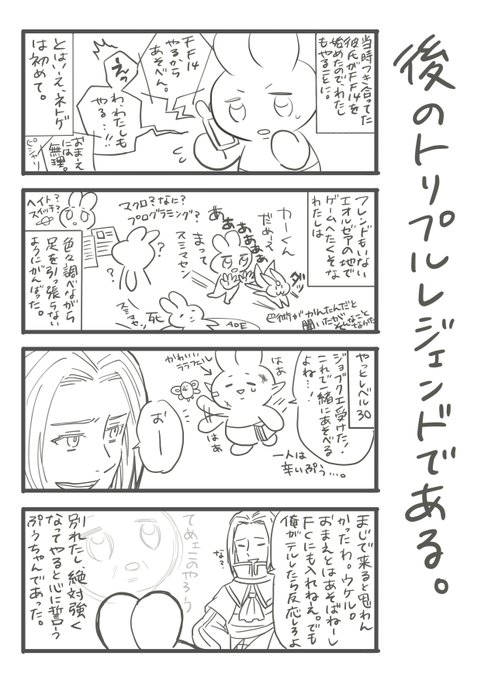 後のトリプルレジェンドである。
当時つき合ってた
彼氏がFF14を
始めたのでわたし
もやることに。
FF14
やるから
あそべん。
えっ
わ、わたしも
やる…!!
とはいえ、ネトゲ
は初めて。
おまえ
には
無理。
ピシャリ
フレンドもいない
エオルゼアの地で
ゲームへたくそな
わたしは
かーくん
だめえ
ああああぁ
まって
スミマセン
ダッ
マクロ?なに?
プログラミング?
ヘイト?
スイッチ?
スミマセン
死
AOE
色々調べながら
足を引っ張らない
ようにがんばった。
やっとレベル30
ジョブクエ受けた!
これで一緒にあそべる
よね…!
はぁ
はぁ
かわいい
ララフェル
一人は
辛いぷぅ…。
おー
まじで来ると思わん
かったわ。ウケル。
おまえとはあそばねーし
FCにも入れねえ。でも
俺がテルしたら反応しろよ
な?
てめェこのやろう
別れたし、絶対強く
なってやると心に誓う
ぷぅちゃんであった。